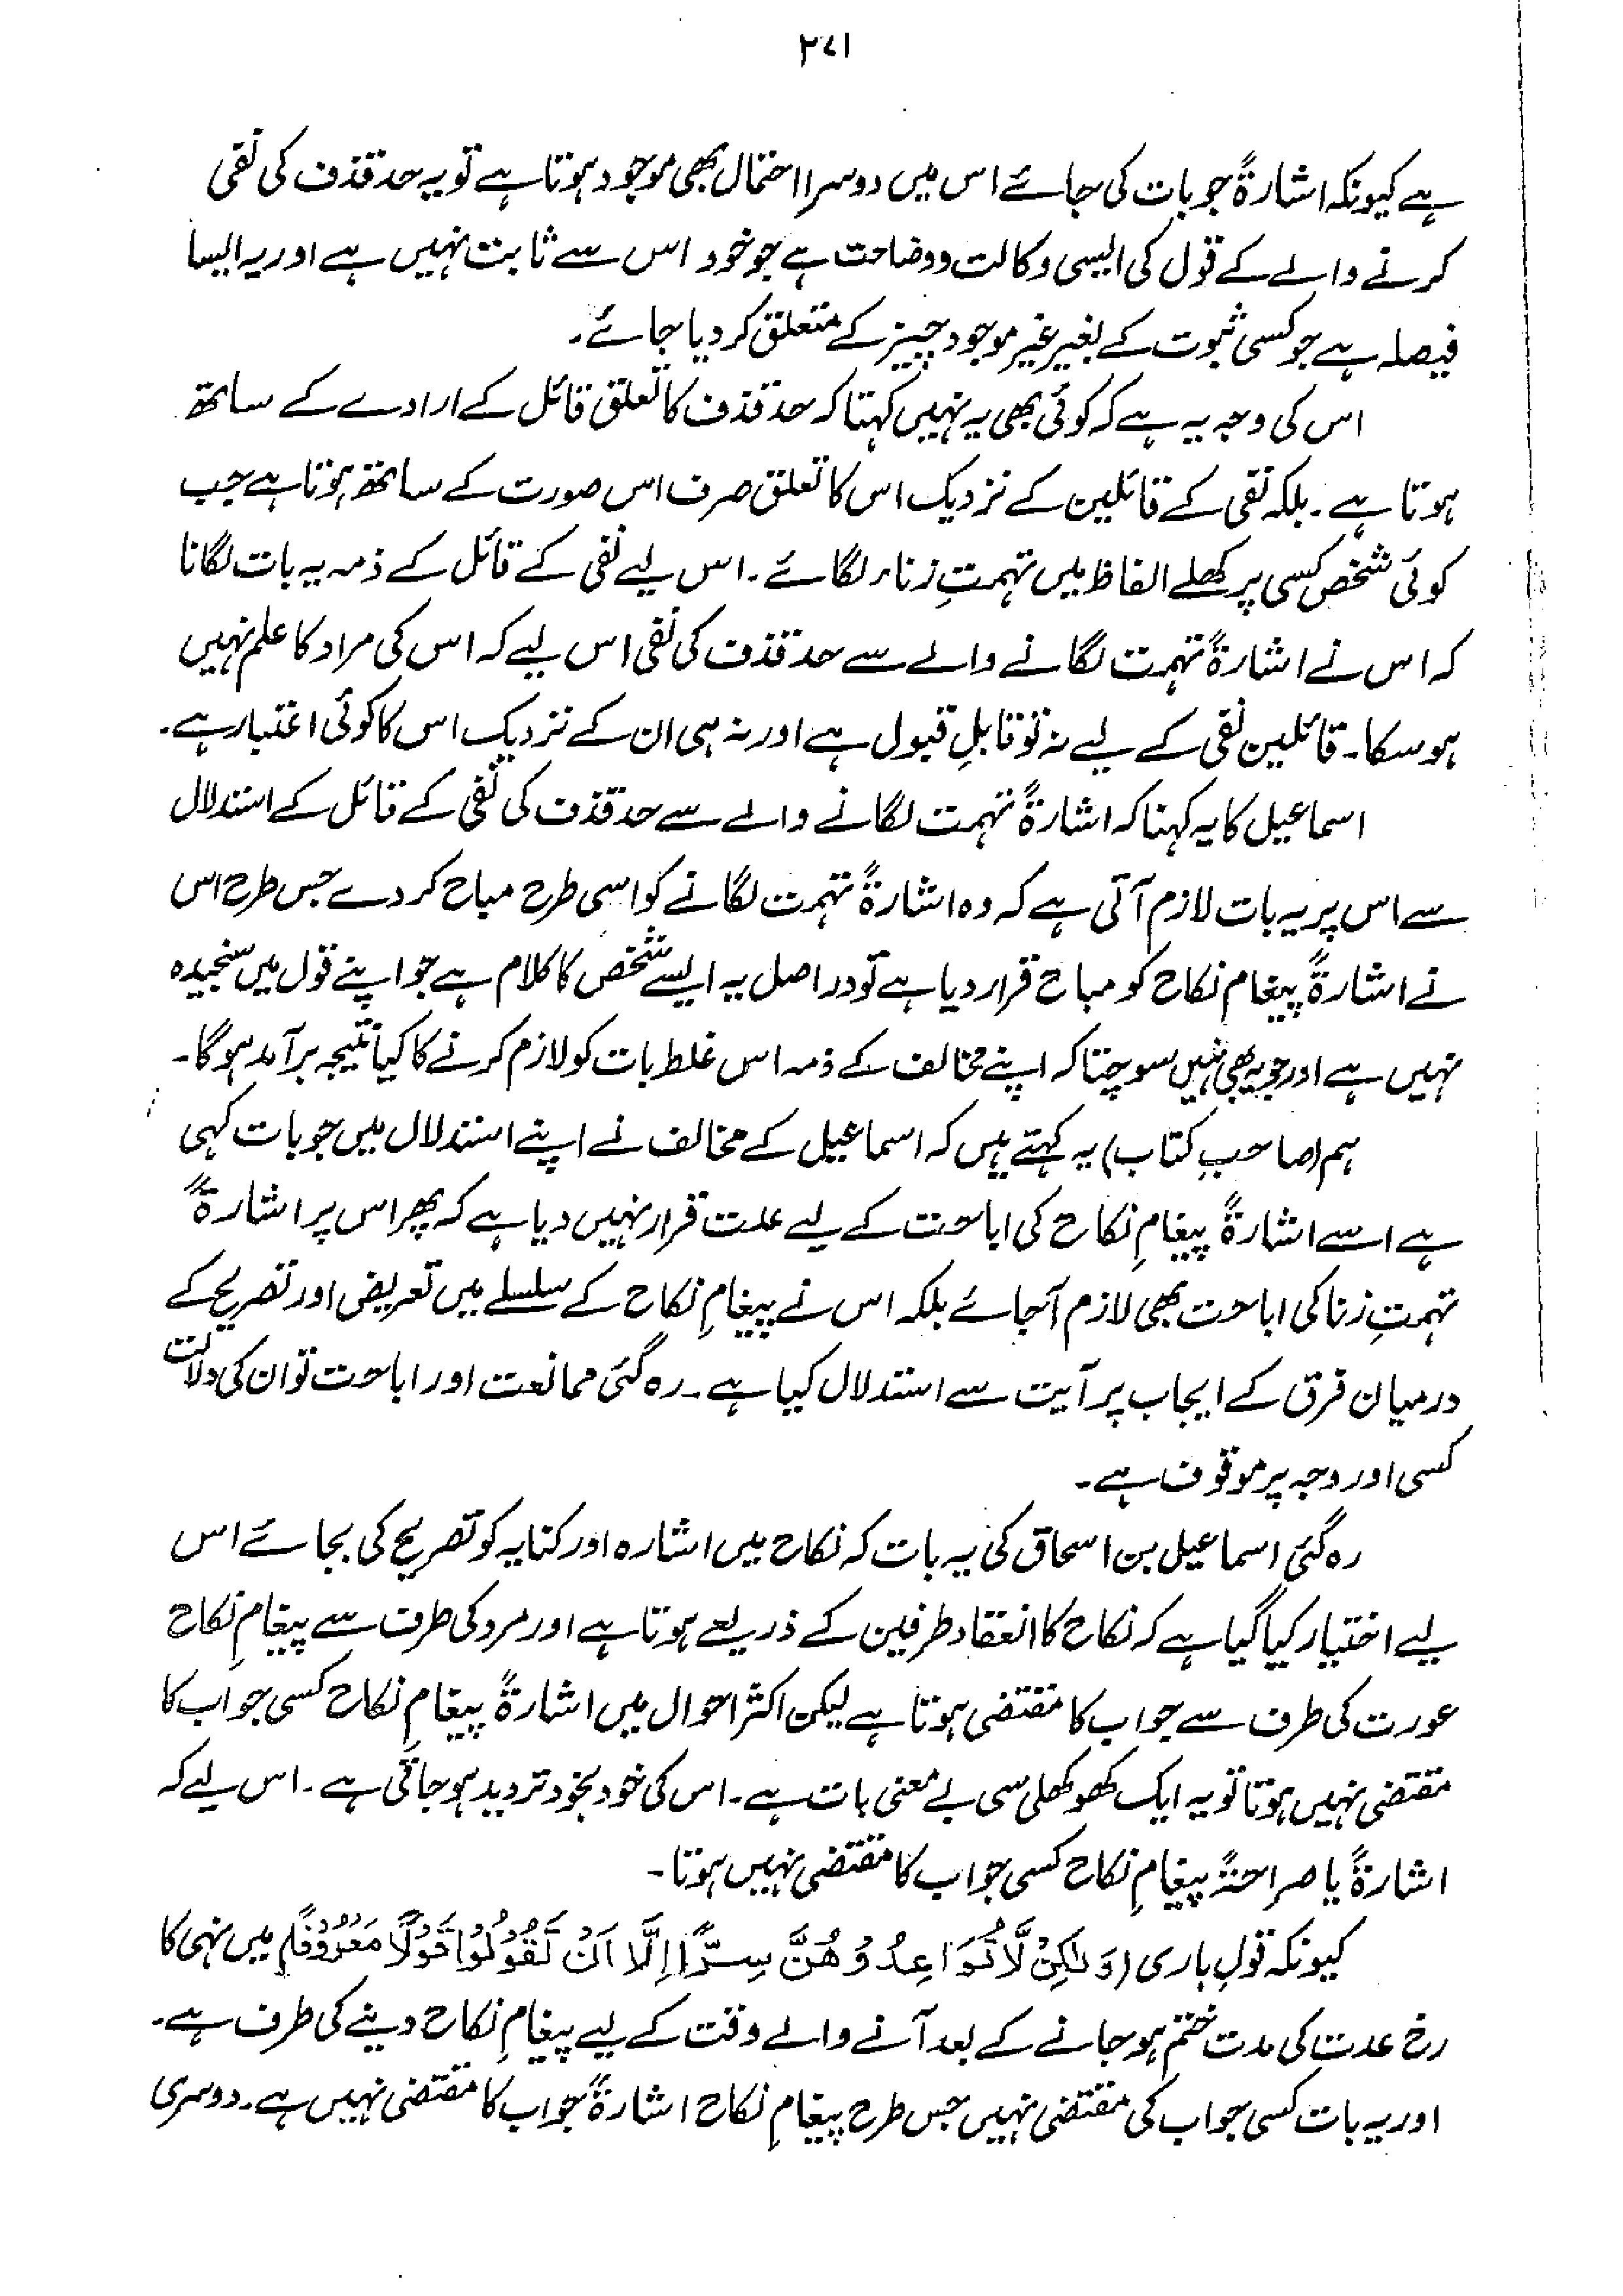 ۲۷۱
ہے کیونکہ اشارۃً جو بات کی جائے اس میں دوسرا احتمال بھی موجود ہوتا ہے تو یہ حد قذف کی نفی
کرنے والے کے قول کی ایسی وکالت و وضاحت ہے جو خود اس سے ثابت نہیں ہے اور یہ ایسا
فیصلہ ہے جو کسی ثبوت کے بغیر غیر موجود چیز کے متعلق کر دیا جائے۔
اس کی وجہ یہ ہے کہ کوئی بھی یہ نہیں کہتا کہ حد قذف کا تعلق قائل کے ارادے کے ساتھ
ہوتا ہے۔ بلکہ نفی کے قائلین کے نزدیک اس کا تعلق صرف اس صورت کے ساتھ ہوتا ہے جب
کوئی شخص کسی پر کھلے الفاظ میں تہمتِ زناء لگائے۔ اس لیے نفی کے قائل کے ذمہ یہ بات لگانا
کہ اس نے اشارۃً تہمت لگانے والے سے حد قذف کی نفی اس لیے کہ اس کی مراد کا علم نہیں
ہو سکا۔ قائلین نفی کے لیے نہ تو قابلِ قبول ہے اور نہ ہی ان کے نزدیک اس کا کوئی اعتبار ہے۔
اسماعیل کا یہ کہنا کہ اشارۃً تہمت لگانے والے سے حد قذف کی نفی کے قائل کے استدلال
سے اس پر یہ بات لازم آتی ہے کہ وہ اشارۃً تہمت لگانے کو اسی طرح مباح کر دے جس طرح اس
نے اشارۃً پیغام نکاح کو مباح قرار دیا ہے تو در اصل یہ ایسے شخص کا کلام ہے جو اپنے قول میں سنجیدہ
نہیں ہے اور جو یہ بھی نہیں سوچتا کہ اپنے مخالف کے ذمہ اس غلط بات کو لازم کرنے کا کیا نتیجہ برآمد ہو گا۔
ہم (صاحبِ کتاب) یہ کہتے ہیں کہ اسماعیل کے مخالف نے اپنے استدلال میں جو بات کہی
ہے اسے اشارۃً پیغامِ نکاح کی اباحت کے لیے علت قرار نہیں دیا ہے کہ پھر اس پر اشارۃً
تہمتِ زنا کی اباحت بھی لازم آجائے بلکہ اس نے پیغامِ نکاح کے سلسلے میں تعریض اور تصریح کے
درمیان فرق کے ایجاب پر آیت سے استدلال کیا ہے۔ رہ گئی ممانعت اور اباحت تو ان کی دلالت
کسی اور وجہ پر موقوف ہے۔
رہ گئی اسماعیل بن اسحاق کی یہ بات کہ نکاح میں اشارہ اور کنایہ کو تصریح کی بجائے اس
لیے اختیار کیا گیا ہے کہ نکاح کا انعقاد طرفین کے ذریعے ہوتا ہے اور مرد کی طرف سے پیغامِ نکاح
عورت کی طرف سے جواب کا مقتضی ہوتا ہے لیکن اکثر احوال میں اشارۃً پیغامِ نکاح کسی جواب کا
مقتضی نہیں ہوتا تو یہ ایک کھوکھلی سی بے معنی بات ہے۔ اس کی خود بخود تردید ہو جاتی ہے۔ اس لیے کہ
اشارۃً یا صراحتہً پیغامِ نکاح کسی جواب کا مقتضی نہیں ہوتا۔
کیونکہ قولِ باری (وَلٰكِنْ لَّا تُوَاعِدُوْهُنَّ سِرًّا اِلَّا اَنْ تَقُوْلُوْا قَوْلًا مَعْرُوْفًا) میں نہی کا
رخ عدت کی مدت ختم ہو جانے کے بعد آنے والے وقت کے لیے پیغامِ نکاح دینے کی طرف ہے۔
اور یہ بات کسی جواب کی مقتضی نہیں جس طرح پیغامِ نکاح اشارۃً جواب کا مقتضی نہیں ہے۔ دوسری